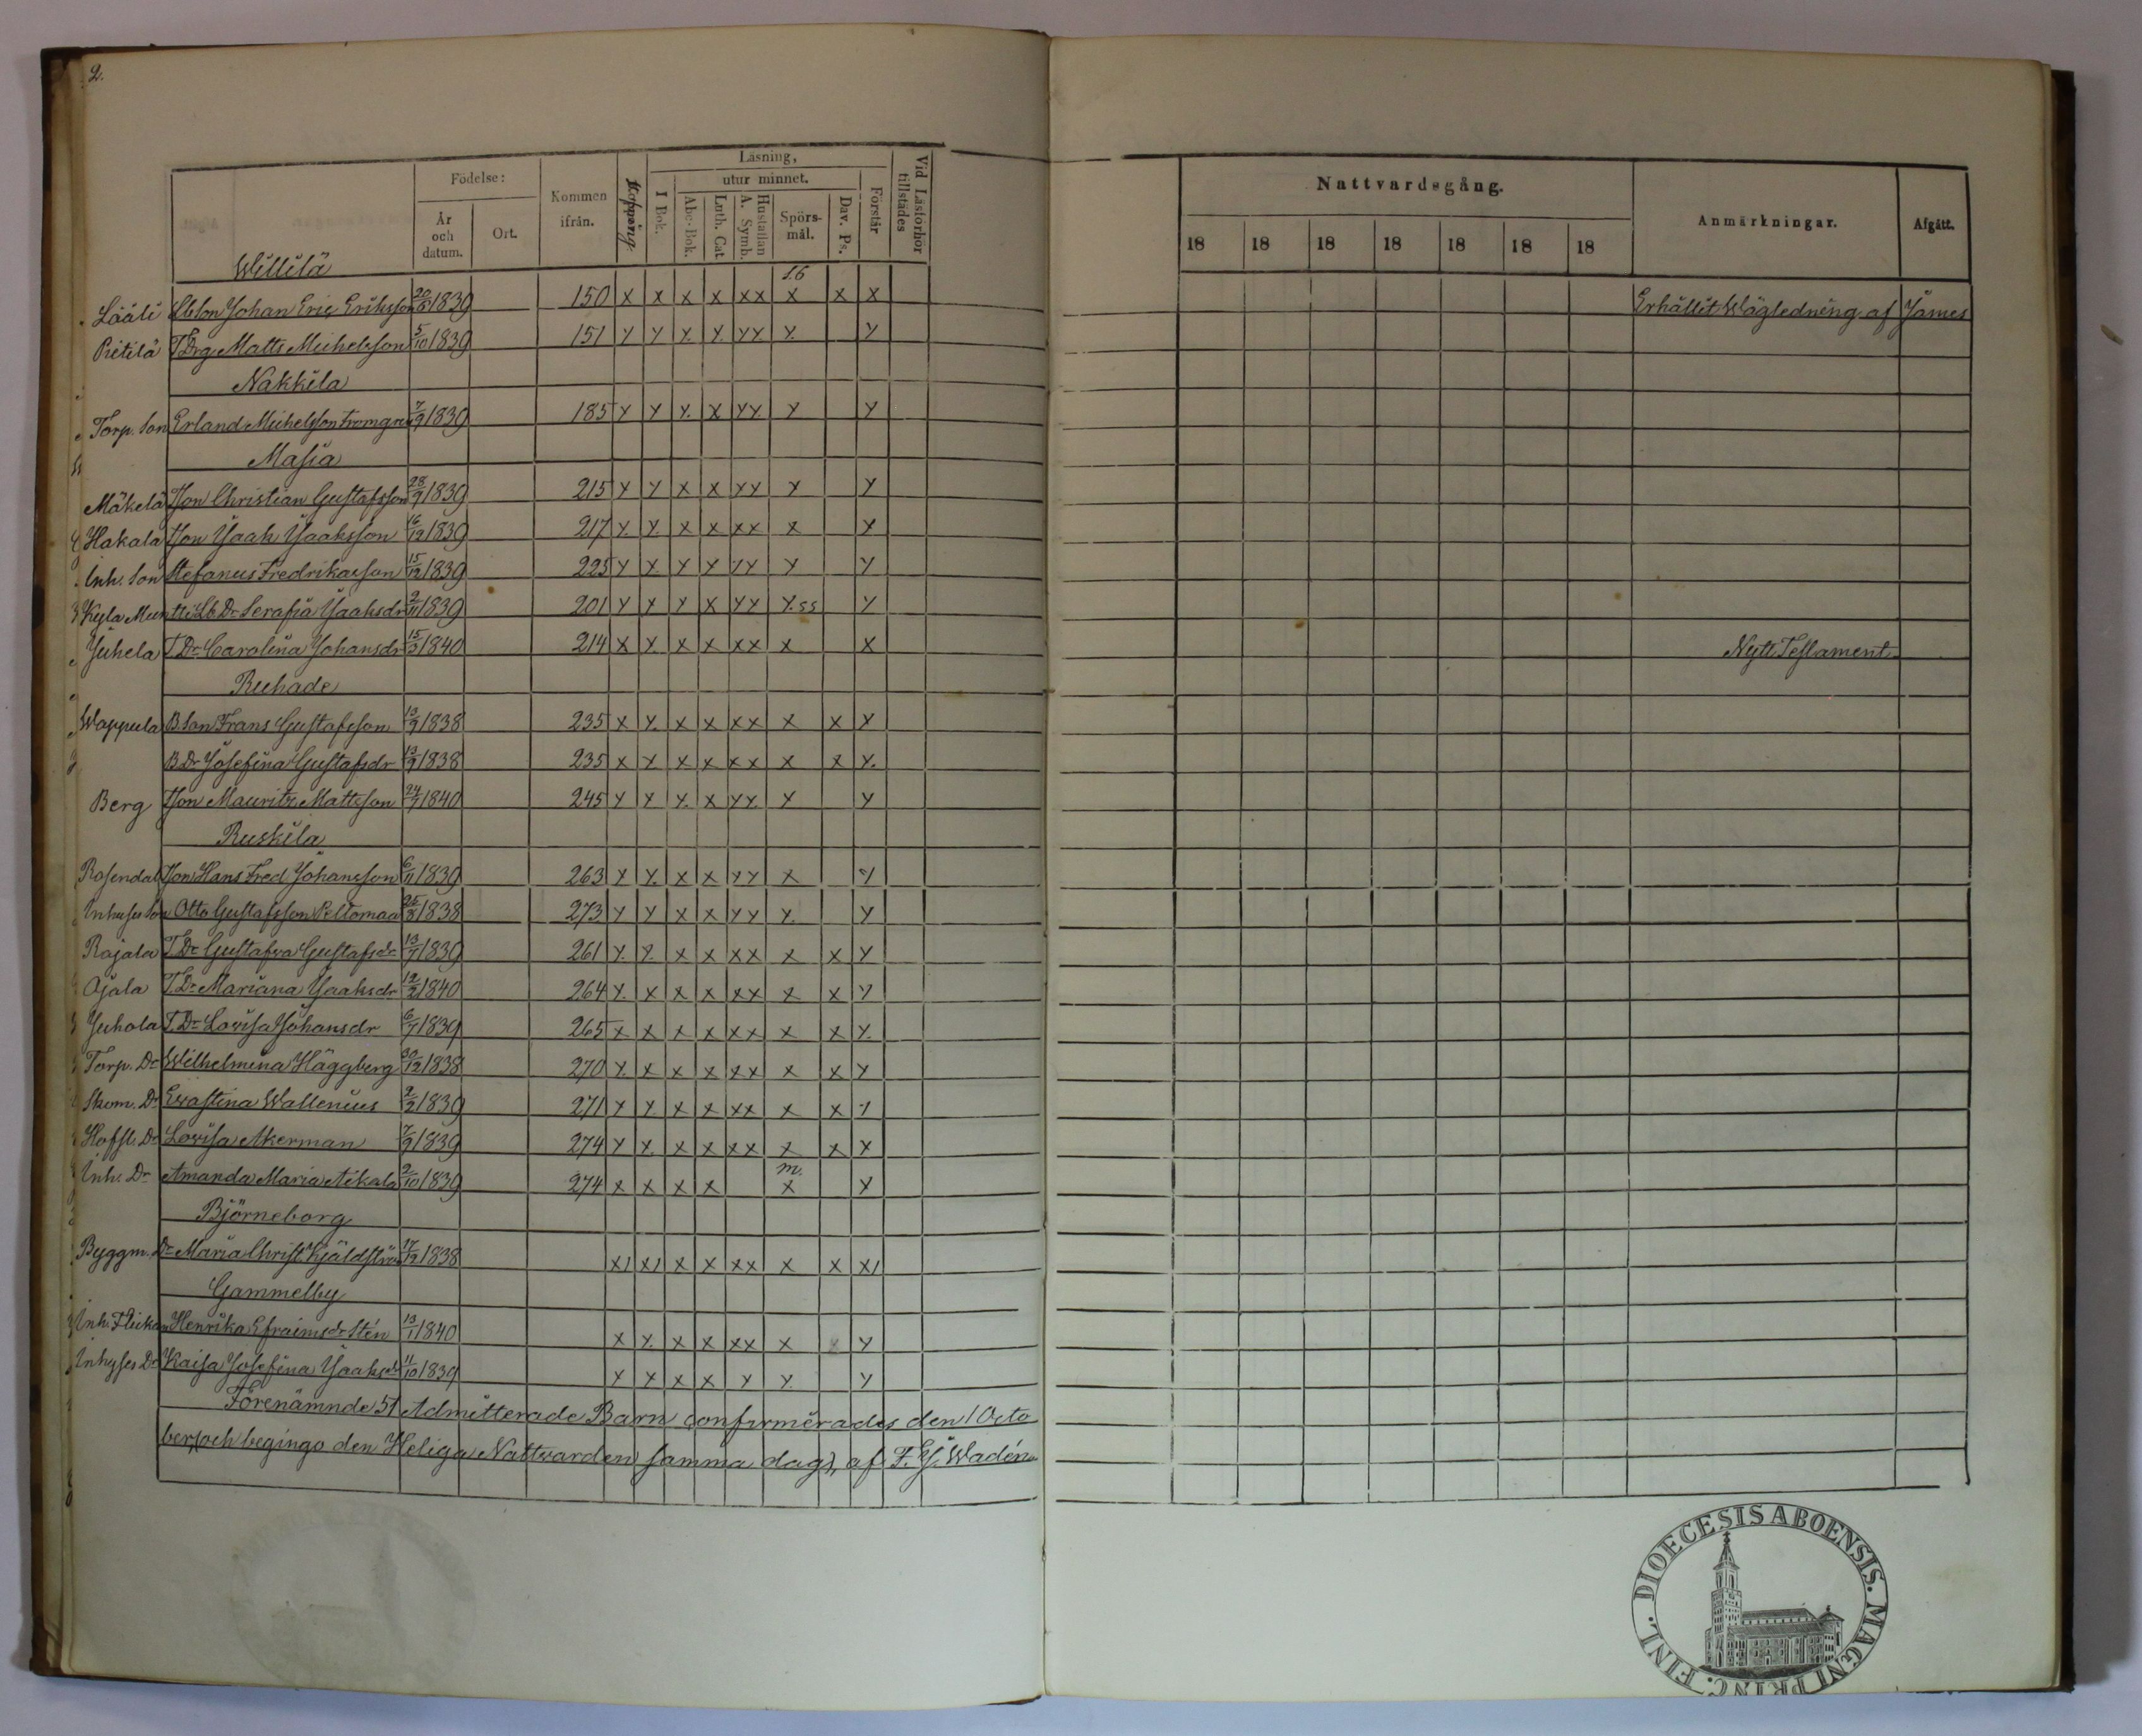 2.
Läsning,
Födelse:
utur minnet.
Vid Läsförhör tillstädes
Kommen ifrån.
Koppning.
I Bok.
Abc-Bok.
Luth. Cat.
Hustaflan A. Symb.
Spörs-mål.
Dav. Ps.
Förstår
År och datum.
Ort.
Nattvardsgång.
Anmärkningar.
Afgått.
18 18 18 18 18 18 18
Willilä
Lääli Johan Eric Eriksson 1839 150 x x x x xx x x x Erhållit Wägledning af James
Pietilä T.Drg Matts Michelsson 5/10 1839 151 x x x x xx x x
Nakkila
Torp. Son Erland Michelsson 7/9 1839 185 x x x x xx x x
Masia
Mäkelä Tson Christian Gustafsson 28/9 1839 215 x x x x xx x x
Hakala Tson Jaak Jaaksson 16/12 1839 217 x x x x xx x x
Inh. Son Stefanus Fredriksson 15/12 1839 225 x x x x xx x x
Kyla Muntti Lb. Dr Serafia Jaaksdr 2/11 1839 201 x x x x xx x ss x
Juhela T. Dr Carolina Johansdr 15/3 1840 214 x x x x xx x x Nytt Testament
Ruhade
Wappula B. Son Frans Gustafsson 13/9 1838 235 x x x x xx x x x
B. Dr Josefina Gustafsdr 13/9 1838 235 x x x x xx x x x
Berg Tson Mauritz Mattsson 24/7 1840 245 x x x x xx x x
Ruskila
Rosendal Tson Hans Fred Johansson 6/11 1839 263 x x x x xx x x
Inhyses Son Otto Gustafsson Peltomaa 1838 273 x x x x xx x x
Rajala T. Dr Gustafva Gustafsdr 13/7 1839 261 x x x x xx x x x
Ojala T. Dr Mariana Jaaksdr 12/2 1840 264 x x x x xx x x x
Juhola T. Dr Lovisa Johansdr 6/7 1839 265 x x x x xx x x x
Torp. Dr Wilhelmina Häggberg 30/12 1838 270 x x x x xx x x x
Skom. Dr Evastina Wallenius 2/2 1839 271 x x x x xx x x x
Hofsl. Dr Lovisa Akerman 7/9 1839 274 x x x x xx x x x
Inh. Dr Amanda Maria Aikala 2/10 1839 274 x x x x m. x x
Björneborg
Byggm. Dr Maria Christ. Kjäldström 17/12 1838 x x x x xx x x x
Gammelby
Inh. Flickan Henrika Efraimsdr Stén 13/1 1840 x x x x xx x x
Inhyses Dr Kaisa Josefina Jaaksdr 11/10 1839 x x x x x x x
Förenämnde 51 Admitterade Barn confirmerades den 1 Octo
ber, (och begingo den Heliga Nattvarden samma dag), af F. Ef. Wadén
DIOECESIS ABOENSIS. MAGNI PRINC. FINL.